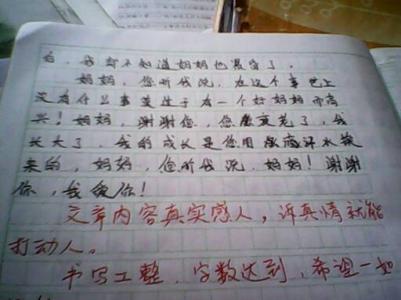 白，我却不知道妈妈也很白了。
妈妈，您听我说，在这个世上
没有什么事莫过于有一个好妈妈而高
兴！妈妈，谢谢您，您变老了，我
长大了，我的成长是您用汗水换
来的，妈妈，您听我说，妈妈！谢谢
你，我爱你！
文章内容真实感人，诉真情就能
打动人。
书写工整，字数达到，希望一如